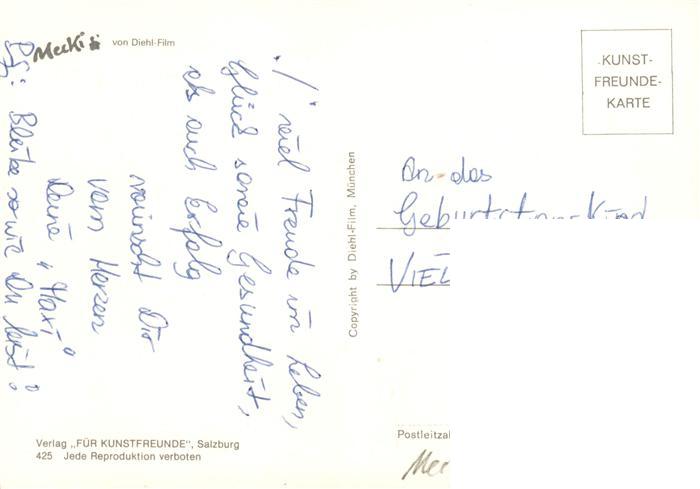 Mecki von Diehl-Film
./. viel Freude im Leben,
Glück sowie Gesundheit,
als auch Erfolg
wünscht Dir
vom Herzen
Deine "Haxi"
Bleibe so wie Du bist!
Copyright by Diehl-Film, München
KUNST-
FREUNDE-
KARTE
An das
Geburtstagskind
VIEL
Postleitzal
Mec
Verlag „FÜR KUNSTFREUNDE“, Salzburg
425 Jede Reproduktion verboten